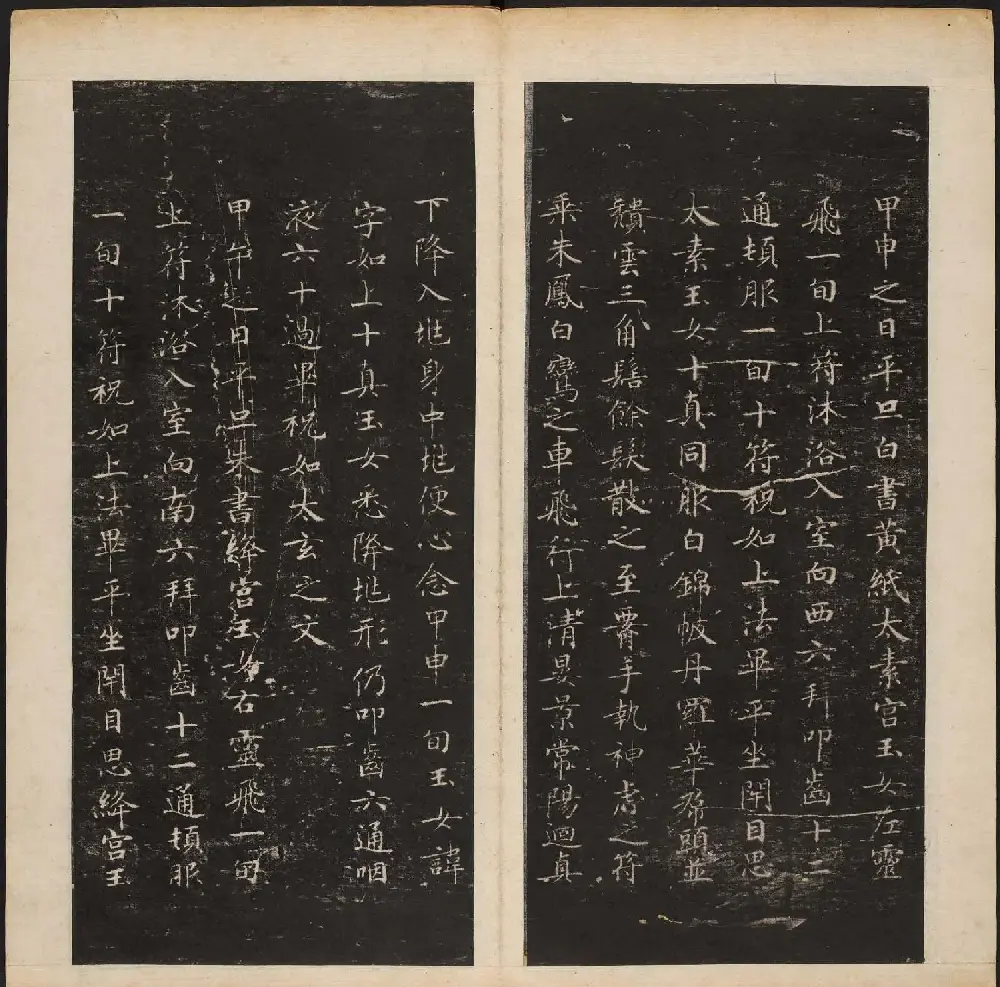 甲申之日平旦白書黃紙太素宮玉女左靈
飛一旬上符沐浴入室向西六拜叩齒十二
通頓服一旬十符祝如上法畢平坐閉目思
太素玉女十真同服白錦帔丹羅華帬頭並
頹雲三角髻餘髮散之至腰手執神虎之符
乘朱鳳白鸞之車飛行上清晏景常陽迴真
下降入地身中地便心念甲申一旬玉女諱
字如上十真玉女悉降地形仍叩齒六通咽
液六十過畢祝如太玄之文
甲午之日平旦朱書絳宮玉女右靈飛一旬
上符沐浴入室向南六拜叩齒十二通頓服
一旬十符祝如上法畢平坐閉目思絳宮玉